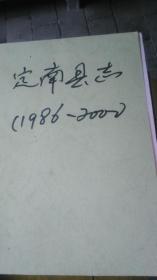 定南县志
(1986-2000)